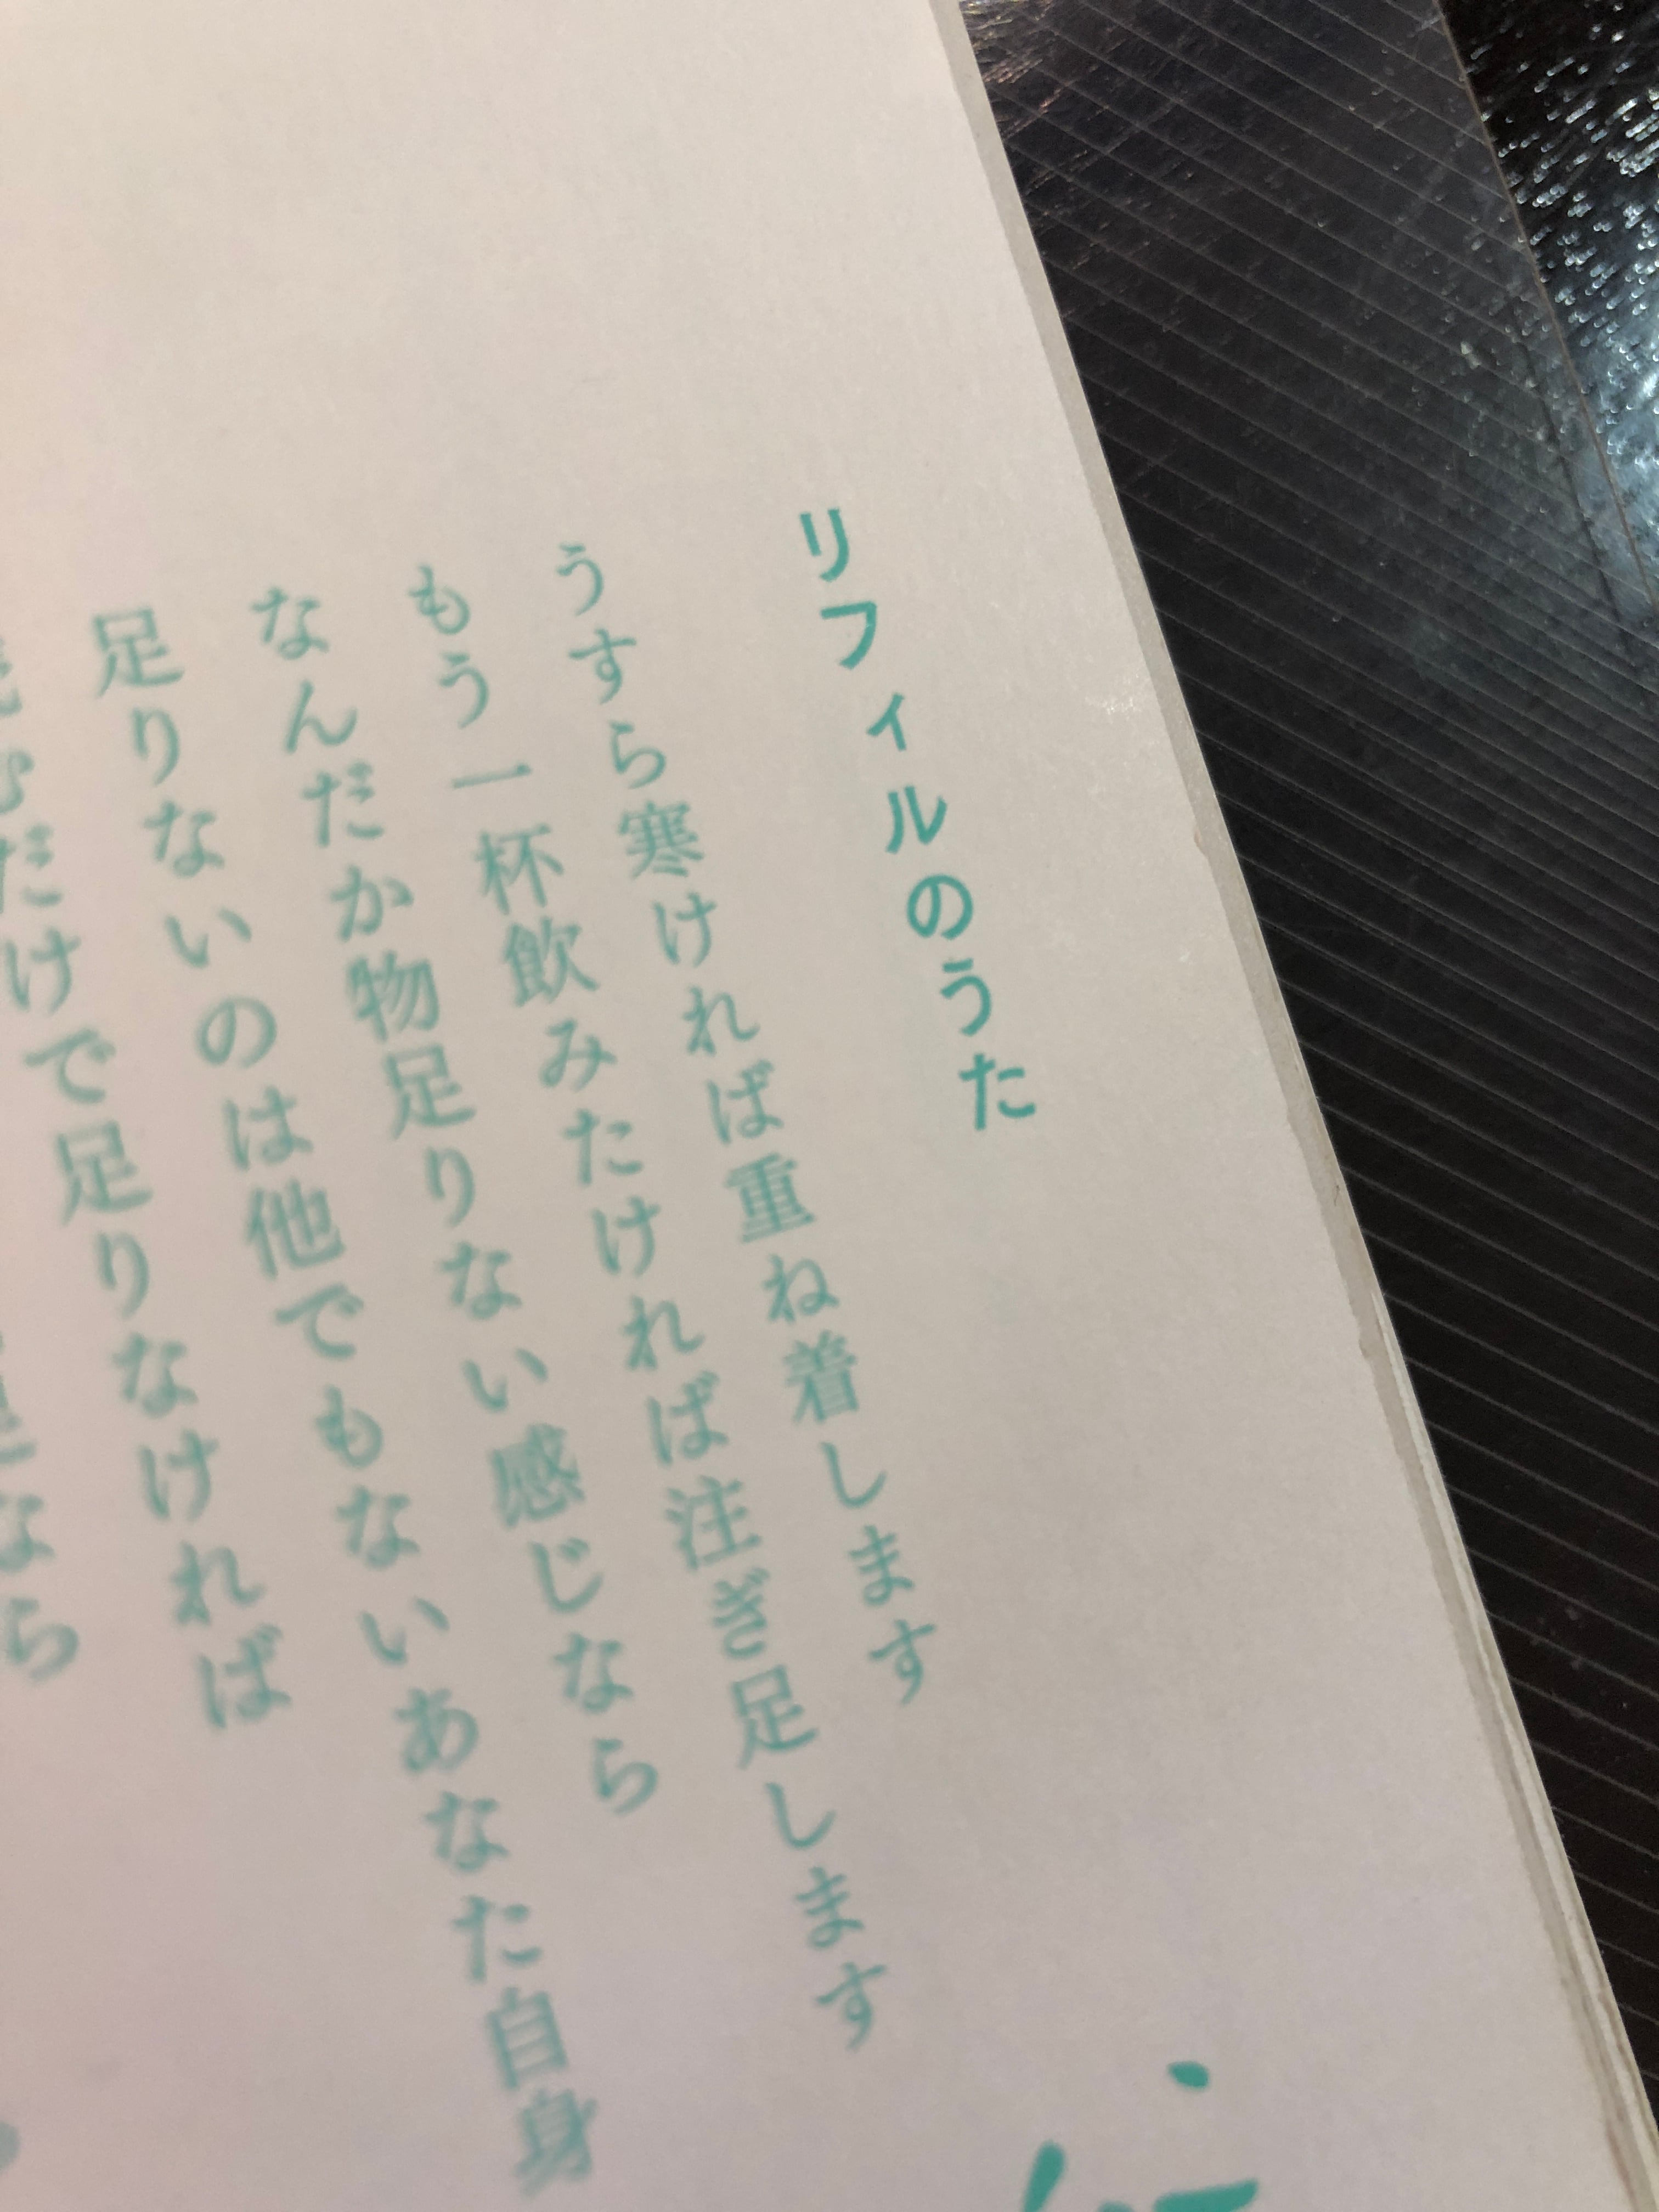 リフィルのうた
うすら寒ければ重ね着します
もう一杯飲みたければ注ぎ足します
なんだか物足りない感じなら
足りないのは他でもないあなた自身
むだけで足りなければ
なら